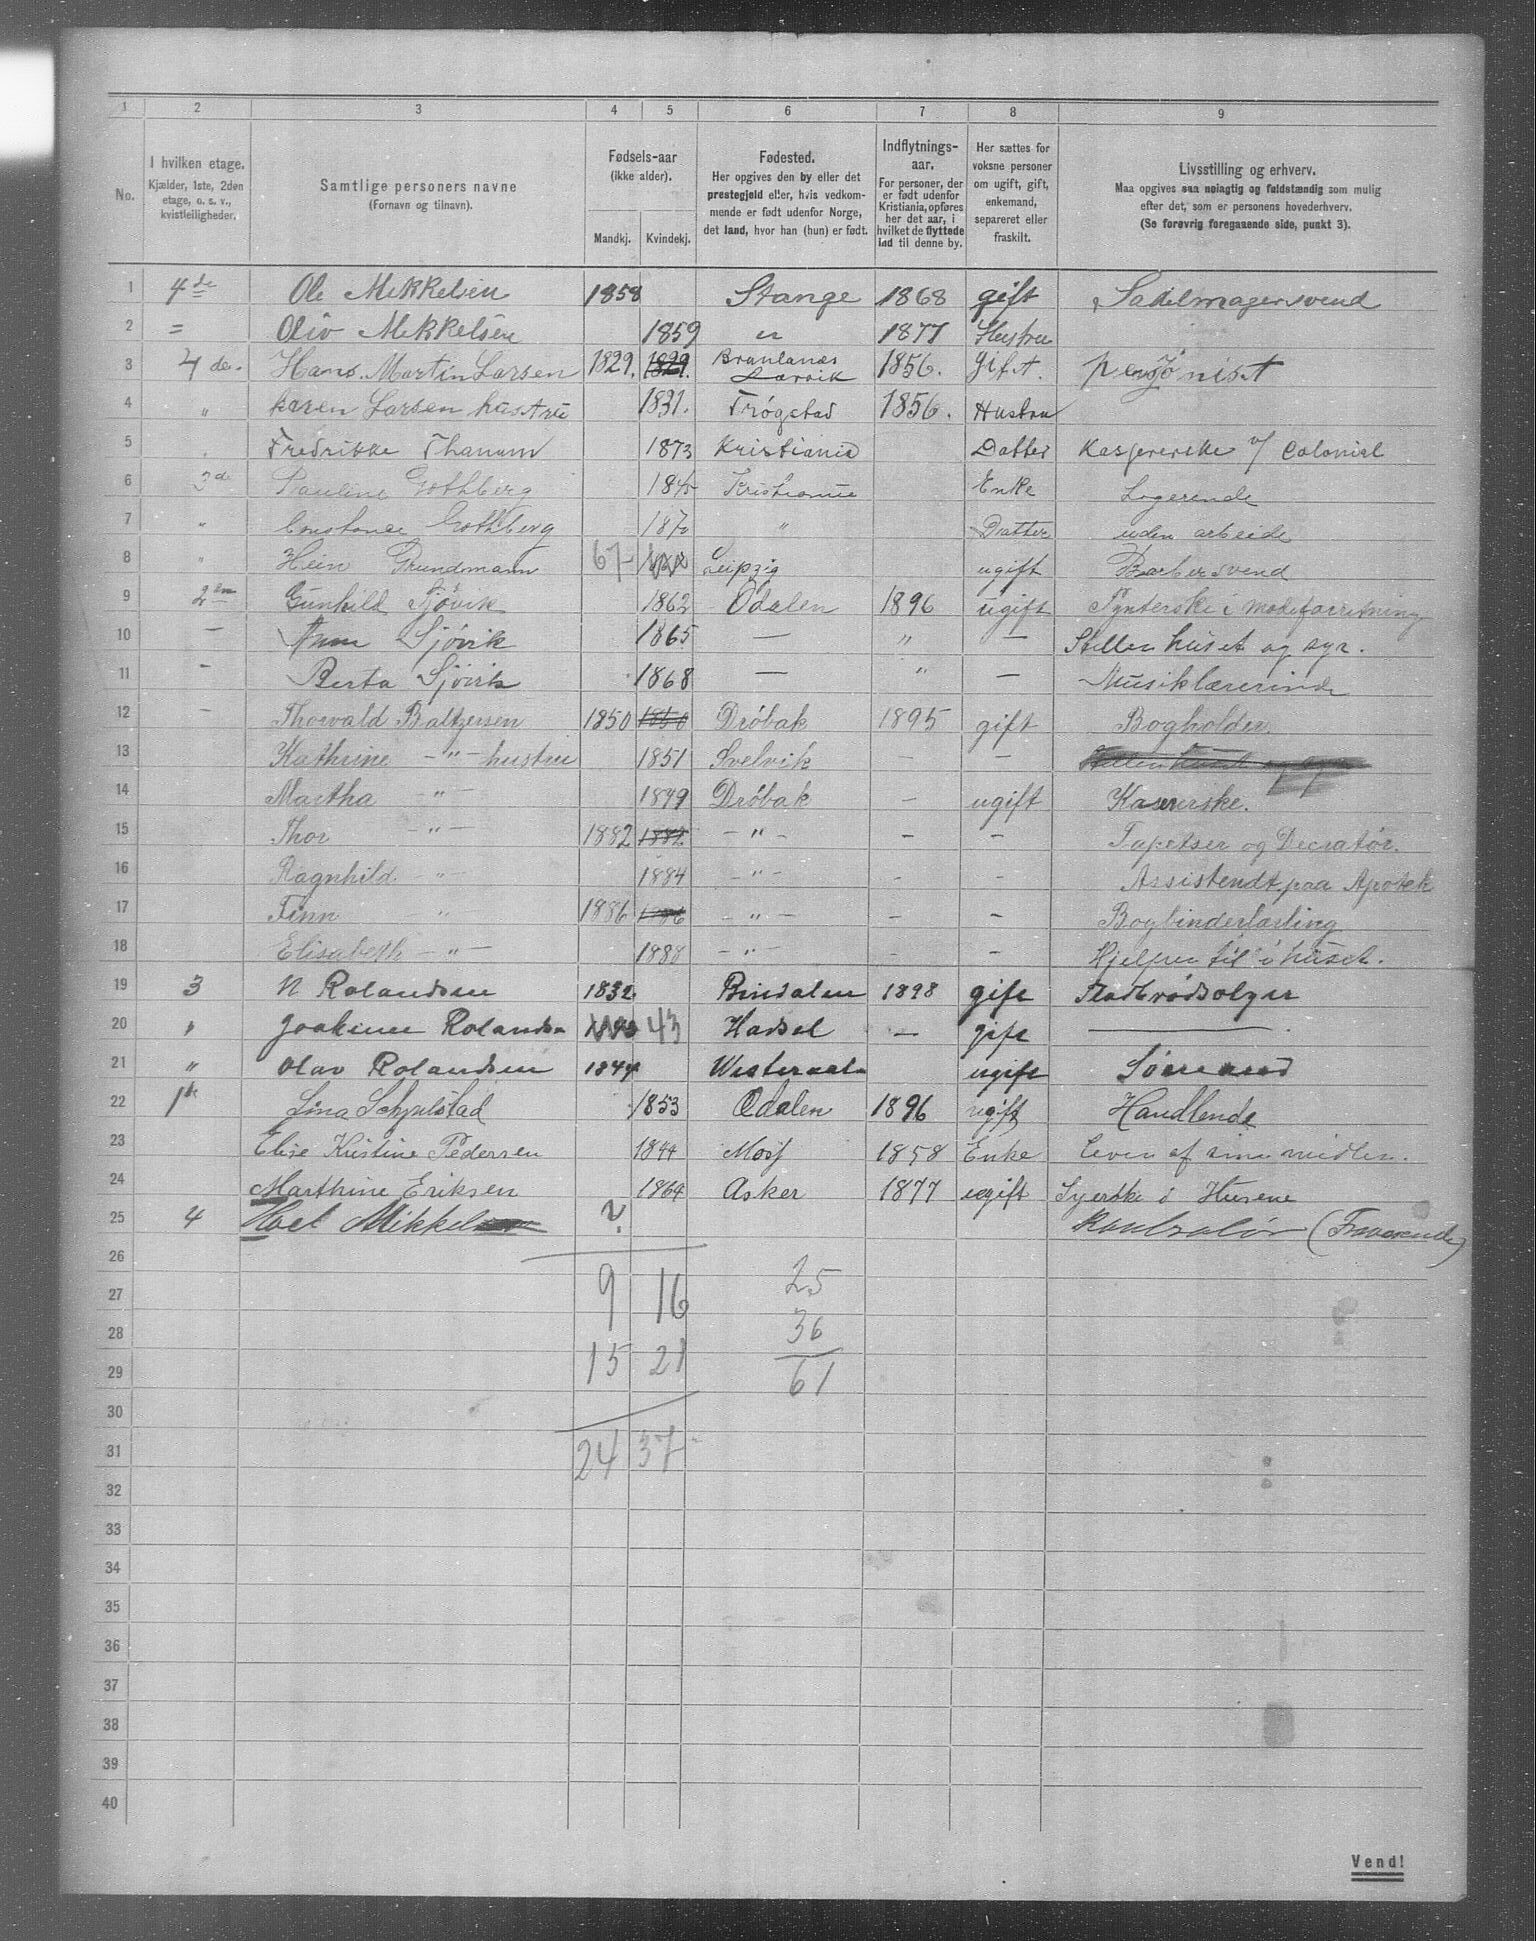 1 2 3 4 5 6 7 8 9
No.
I hvilken etage. Kjælder, 1ste, 2den etage, o. s. v., kvistleiligheder.
Samtlige personers navne (Fornavn og tilnavn).
Fødsels-aar (ikke alder). Mandkj. Kvindekj.
Fødested. Her opgives den by eller det prestegjeld eller, hvis vedkommende er født udenfor Norge, det land, hvor han (hun) er født.
Indflytnings-aar. For personer, der er født udenfor Kristiania, opføres her det aar, i hvilket de flyttede ind til denne by.
Her sættes for voksne personer om ugift, gift, enkemand, separeret eller fraskilt.
Livsstilling og erhverv. Maa opgives saa nøiagtig og fuldstændig som mulig efter det, som er personens hovederhverv. (Se forøvrig foregaaende side, punkt 3).
1 4de Ole Mekkelsen 1858 Stange 1868 gift Sadelmagersvend
2 = Oliv Mekkelsen 1859 1877 Hustru
3 4de. Hans Martin Larsen 1829. 1829. Brunlanæs Larvik 1856. Gift. pensjonist
4 " karen Larsen hustru 1831. Trøgstad 1856. Hustru
5 Fredrikke Thanum 1873 Kristiania Datter Kasjererske v/ Colonial
6 3de Pauline Gothberg 1845 Kristiania Enke Logerende
7 " Constance Gothberg 1870 " Datter uden arbeide
8 " Hein Grundmann 67 Leipzig ugift Barbersvend
9 2den Gunhild Sjøvik 1862 Odalen 1896 ugift Pynterske i modeforretning
10 — Anna Sjövik 1865 — " — Steller huset og syr.
11 — Berta Sjövik 1868 — " — Musiklærerinde
12 — Thorvald Baltzersen 1850 1850 Drøbak 1895 gift Bogholder.
13 Kathrine —"— hustru 1851 Svelvik — — Steller huset og syr
14 Martha —"— 1879 Drøbak — ugift Kasererske.
15 Thor —"— 1882 1882 —"— — — Tapetser og Decratør.
16 Ragnhild —"— 1884 —"— - - Assistendt paa Apotek
17 Finn " 1886 1886 —"— — — Bogbinderlærling
18 Elisabeth —"— 1888 —"— - - Hjelper til i huset.
19 3 N Rolandsen 1832 Bindalen 1898 gift Fladbrødsælger
20 " Joakime Rolands 43 Hadsel — gift
21 " Olav Rolandsen 1874 ugift Sømand
22 1ste Lina Schjulstad 1853 Odalen 1896 ugift Handlende
23 Elise Kristine Pedersen 1844 Moss 1858 Enke Lever af sine midler.
24 Marthine Eriksen 1864 Asker 1877 ugift Syerske i Husene
25 4 Mikkelsen ? Kontrolør (Fraværende)
26
27 9 16 25
28 36
29 15 21 61
30
31 24 37
32
33
34
35
36
37
38
39
40
Vend!